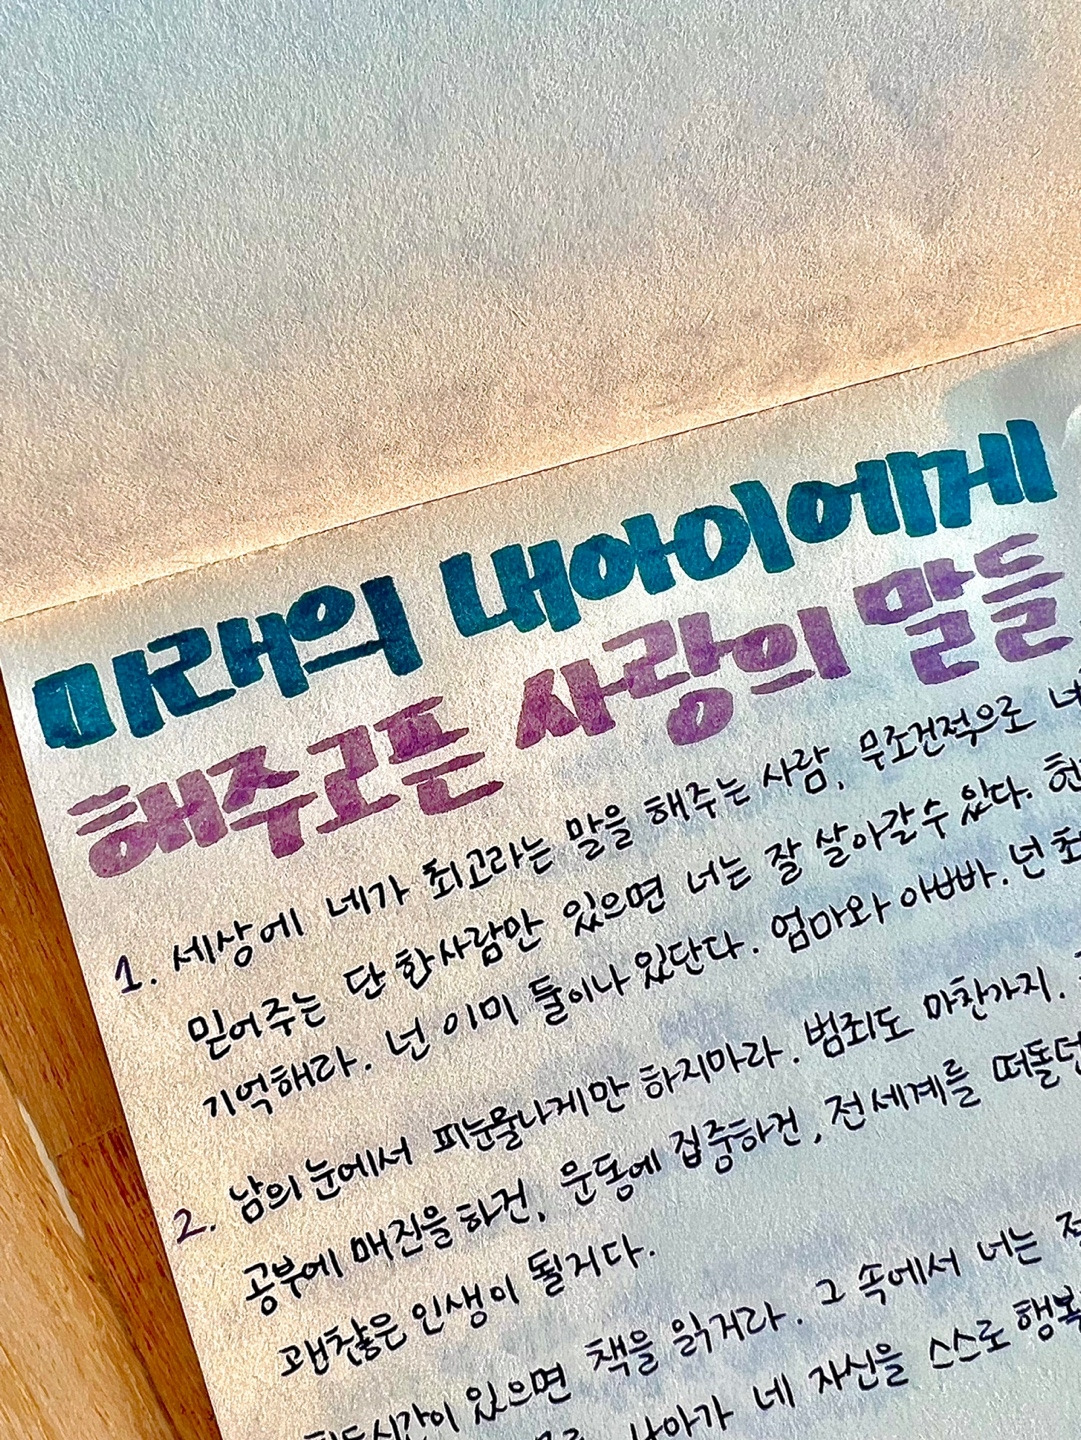 미래의 내아이에게
해주고픈 사랑의 말들
1. 세상에 네가 최고라는 말을 해주는 사람, 무조건적으로
믿어주는 단 한사람만 있으면 너는 잘 살아갈수 있다.
기억해라. 넌 이미 둘이나 있단다. 엄마와 아빠. 넌
2. 남의 눈에서 피눈물나게만 하지마라. 범죄도 마찬가지.
공부에 매진을 하건, 운동에 집중하건, 전세계를 떠돌던
괜찮은 인생이 될거다.
있으면 책을 읽거라. 그 속에서 너는
네 자신을 스스로